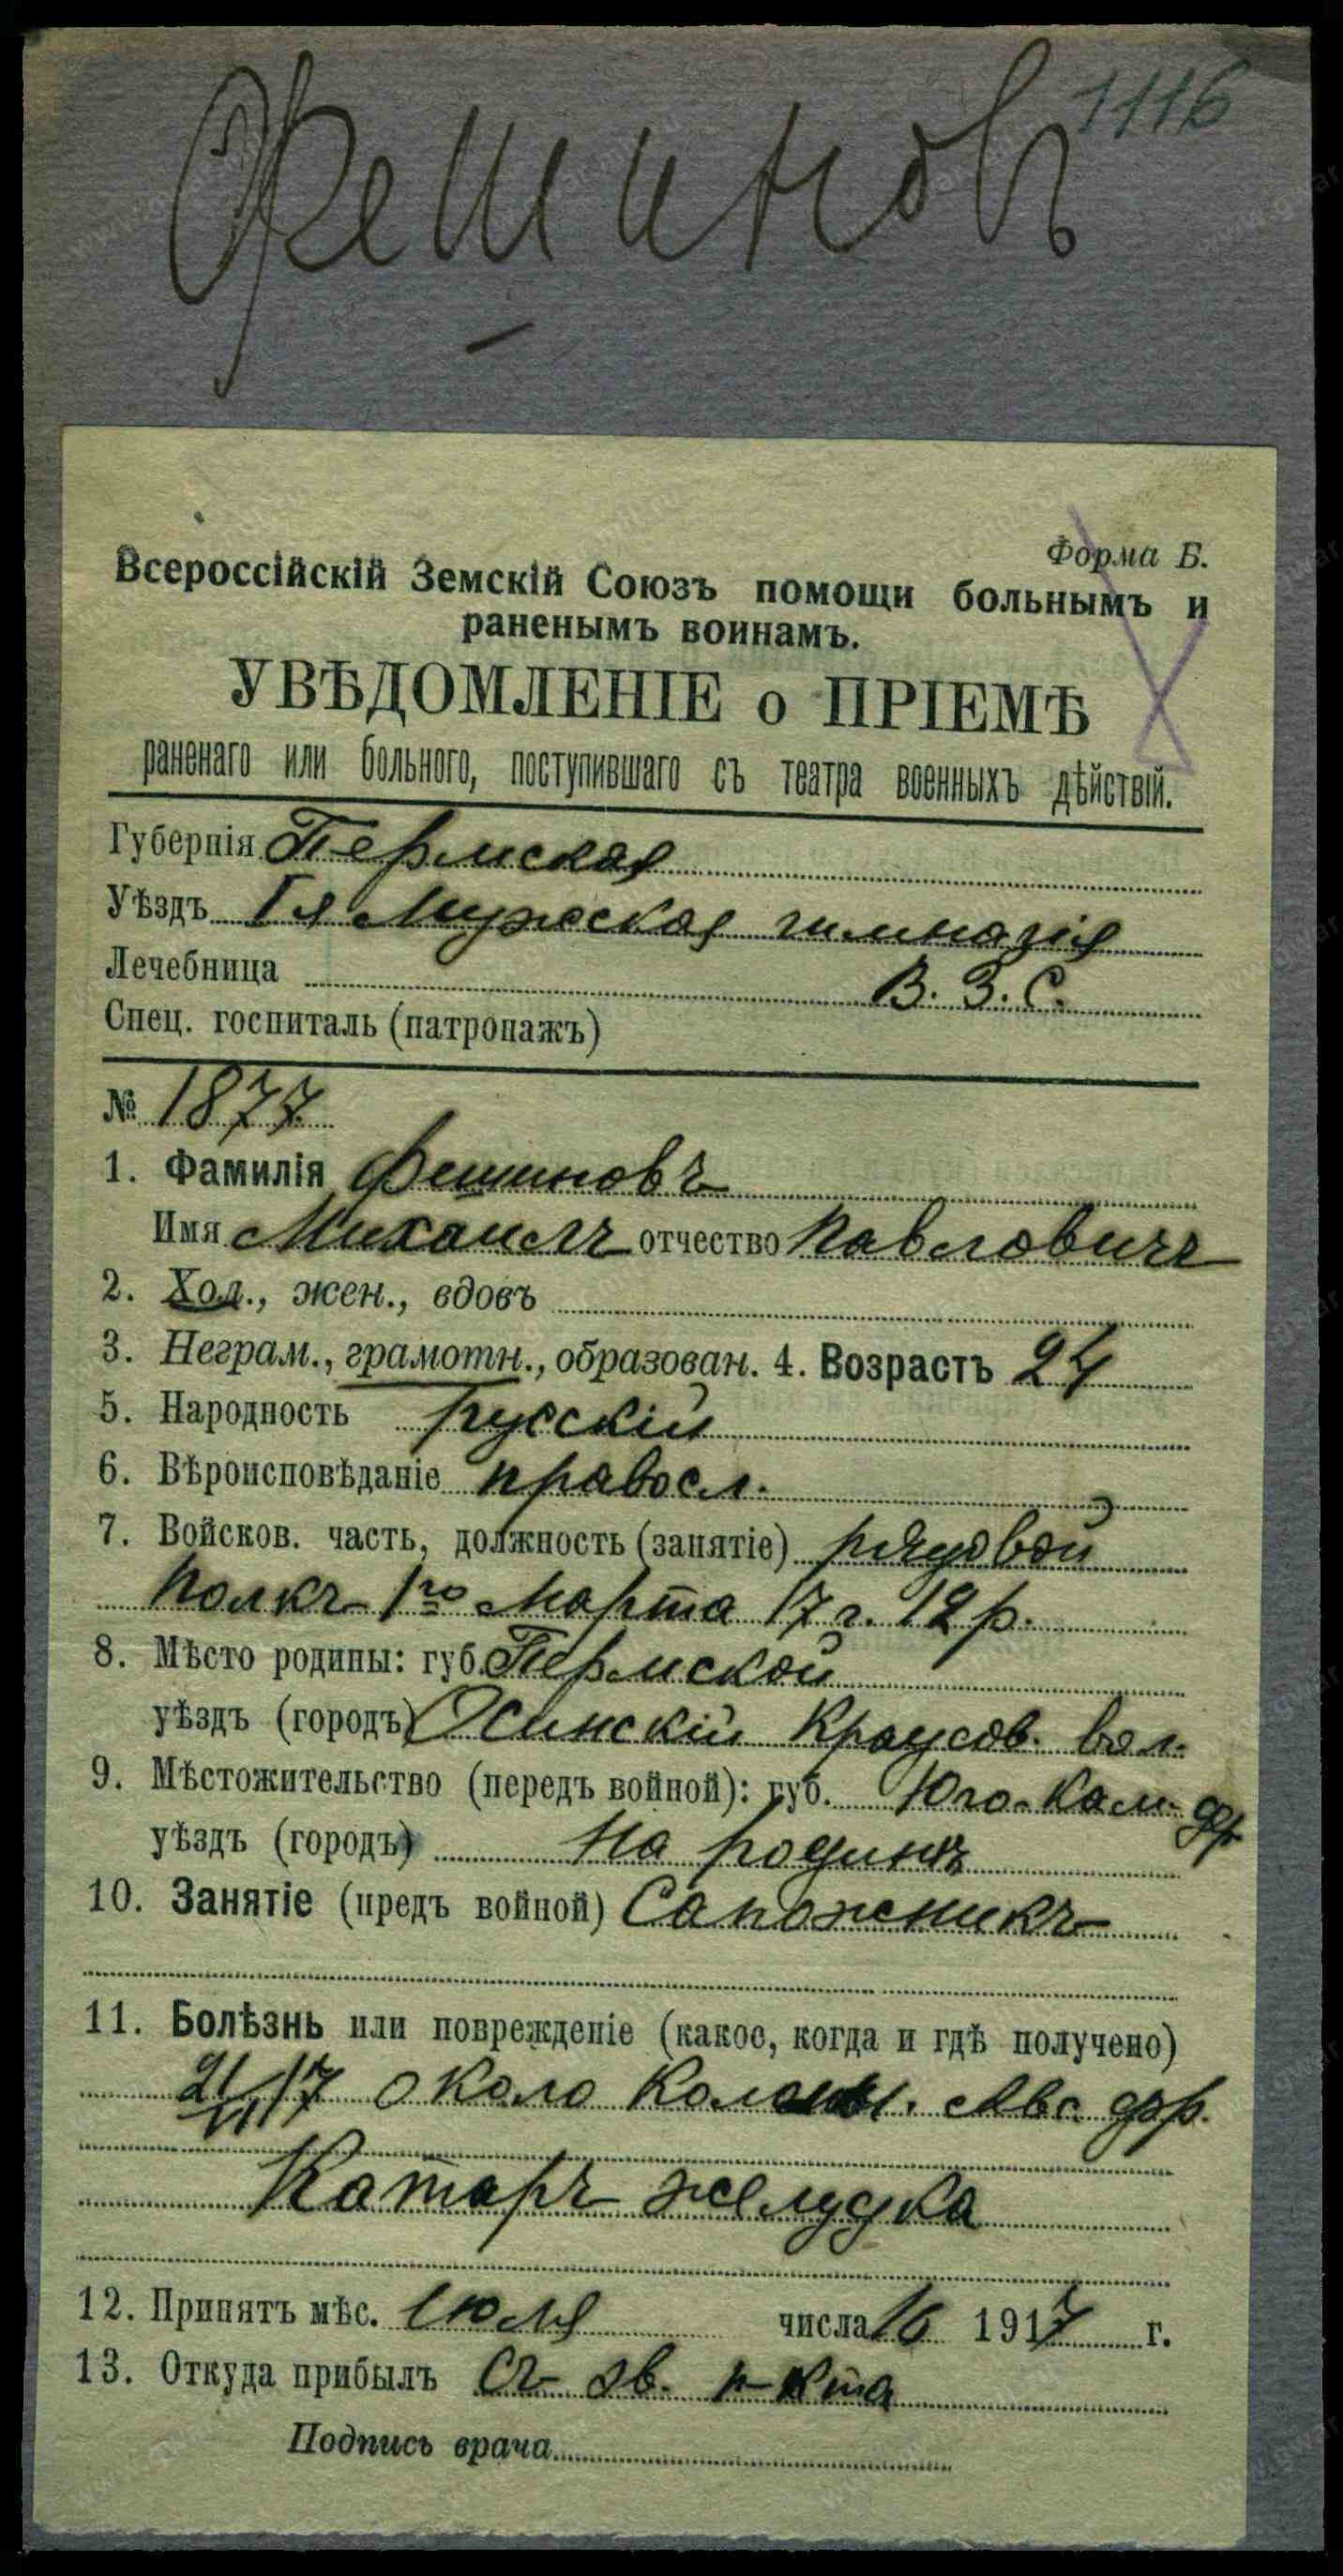 1116
Фешинов
Форма Б.
Всероссійскій Земскій Союзъ помощи больнымъ и
раненымъ воинамъ.
УВѢДОМЛЕНІЕ о ПРІЕМѢ
раненаго или больного, поступившаго съ театра военныхъ дѣйствій.
Губернія Пермская
Уѣздъ 1я Мужская гимназія
Лечебница В. З. С.
Спец. госпиталь (патронажъ)
№ 1877
1. Фамилія Фешиновъ
Имя Михаилъ отчество Павловичъ
2. Хол., жен., вдовъ
3. Неграм., грамотн., образован. 4. Возрастъ 24
5. Народность русскій
6. Вѣроисповѣданіе правосл.
7. Войсков. часть, должность (занятіе) рядовой
полкъ 1го Марта 17 г. 12 р.
8. Мѣсто родины: губ. Пермской
уѣздъ (городъ) Осинскій Краусов. вол.
9. Мѣстожительство (передъ войной): губ. Юго-Кам.
уѣздъ (городъ) На родинѣ
10. Занятіе (предъ войной) Сапожникъ
11. Болѣзнь или поврежденіе (какое, когда и гдѣ получено)
21/VI 17 около Авс. фр.
Катаръ желудка
12. Принятъ мѣс. Іюля числа 16 1917 г.
13. Откуда прибылъ Съ эв. п-кта
Подпись врача